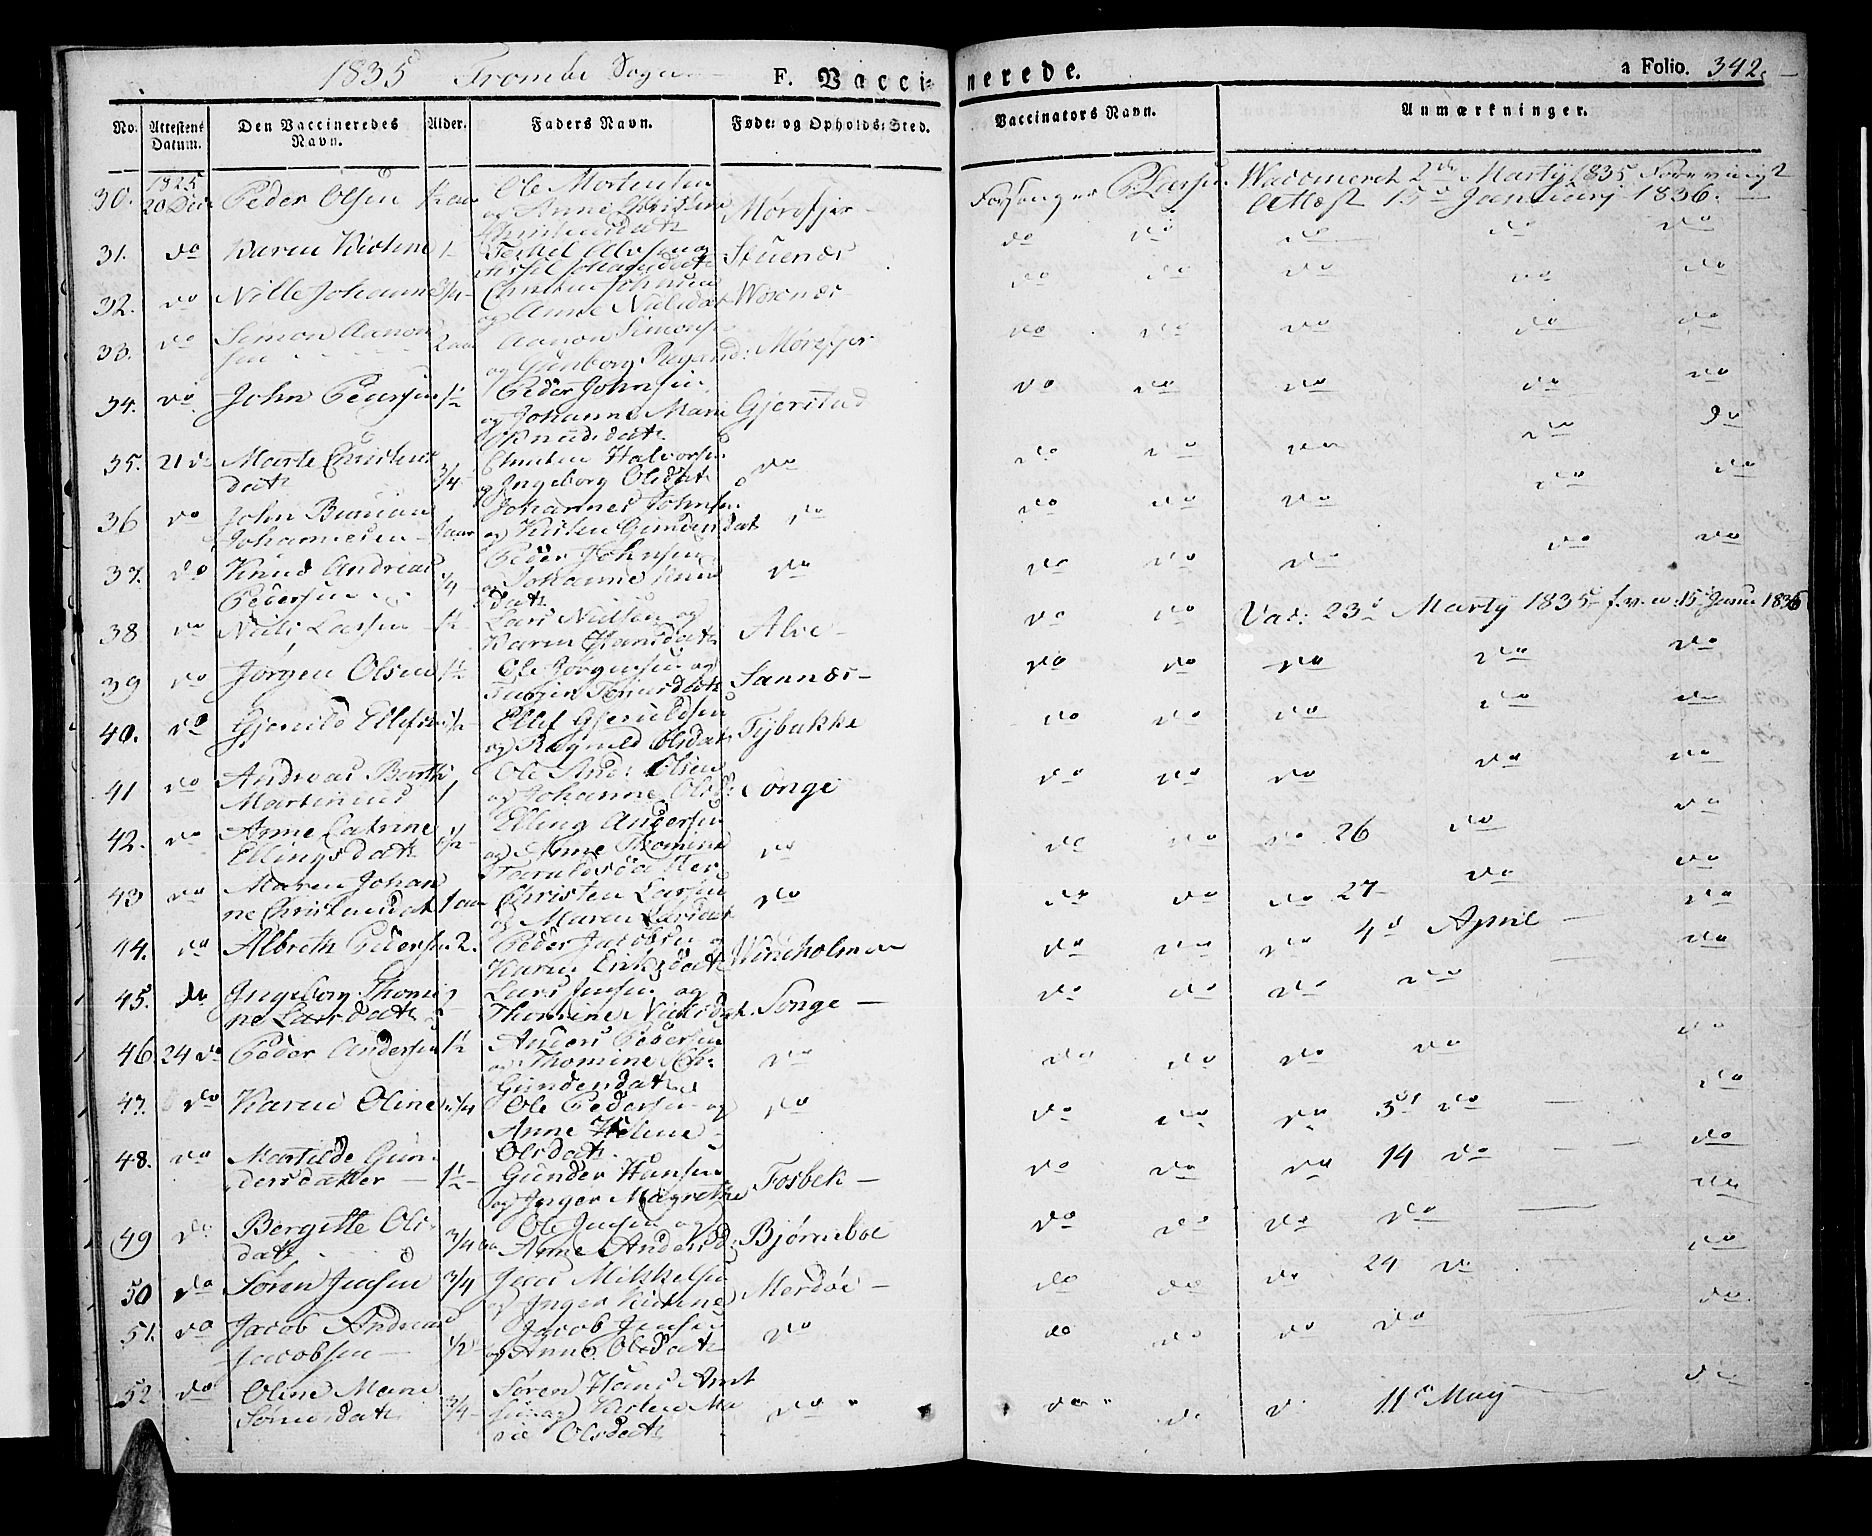 1835 Tromøe Sogn
F. Vaccinerede.
a Folio. 342.
No. Attestens Datum. Den Vaccineredes Navn. Alder. Faders Navn. Føde- og Opholds-Sted. Vaccinators Navn. Anmærkninger.
30. 20 Dec Peder Olsen Ole Mortensen
og Anne Christine Morefjær Forsanger P. Larsen Vaccineret 2den Marty 1835
Attest 15d Januarj 1836.
31. do Karen Kirstine 1 Terkel
Stuenæs do do do do do
32. do Nille Johanne 3/4 Christen Johnsen
og Anne Nielsdat Woxnæs do do do do do
33. do Simon Aanon
sen 2 aar Aanon Simonsen
og Gunborg Morefjær do do do do do
34. do John Pedersen 1½ Peder Johnsen
og Johanne Marie Gjerstad do do do do do
Knudsdatr
35. 21 do Marte Christens
datr 3/4 Christen Halvorsen
og Ingeborg Olsdatr do do do do do do
36 do John Bunian
Johannesen 1 aar Johannes Johnsen
og Kirsten Gundersdat do do do do do do
37. do Knud Andreas
Pedersen 1/4 Peder Johnsen
og Johanne Knuds
datr do do do do do do
38 do Niels Larsen 1½ Lars Nielsen og
Karen Hansdatr Alve do do Vac: 23d Marty 1835 f.v.a. 15 Januar 1836
39 do Jørgen Olsen 1½ Ole Jørgensen og
Sannæs do do do do do
40. do Gjeruld Ellefsen 1½ Ellef Gjeruldsen
og Ragnild Olsdatr Tybakke do do do do do
41 do Andreas Barth
Martinius 1 Ole And: Olsen
og Johanne Olsd: Songe do do do do do
42. do Anne Catrine
Ellingsdatr 1½ Elling Andersen
og Anne Thomine
Taraldsdatter do do do do 26 do do
43 do Maren Johan
ne Christensdat 1 aar Christen Larsen
og Maren Larsdat do do do do 27 do do
44. do Albreth Pedersen 2. Peder Jacobsen og
Karen Eriksdatr Wineholmen do do do 4d April do
45. do Ingeborg Thomi
ne Larsdatr Lars Jensen og
Thomine Nielsdat. Songe do do do do do
46 24 do Peder Andersen 1½ Anders Pedersen
og Thomine Chr.
Gundersdatr do do do do do do
47. do Karen Oline 1¼ Ole Pedersen og
Anne Heline
Olsdatr do do do do 3d do do
48. do Martilde Gun
dersdatter 1½ Gunder Hansen
og Inger Magrethe Fosbek do do do 14 do do
49 do Bergitte Ols
datr 3/4 aar Ole Jensen og
Anne Andersd: Bjørneboe do do do do do
50 do Søren Jensen 3/4 Jens Mikkelsen
og Inger Kirstine Merdøe do do do 24 do do
51. do Jacob Andreas
Jacobsen 1/2 Jacob Jensen
og Anne Olsdatr do do do do do do
52 do Oline Marie
Sørensdatr 3/4 Søren Hans Arnt
sen og Kirsten Ma
rie Olsdatr do do do do 11d May do